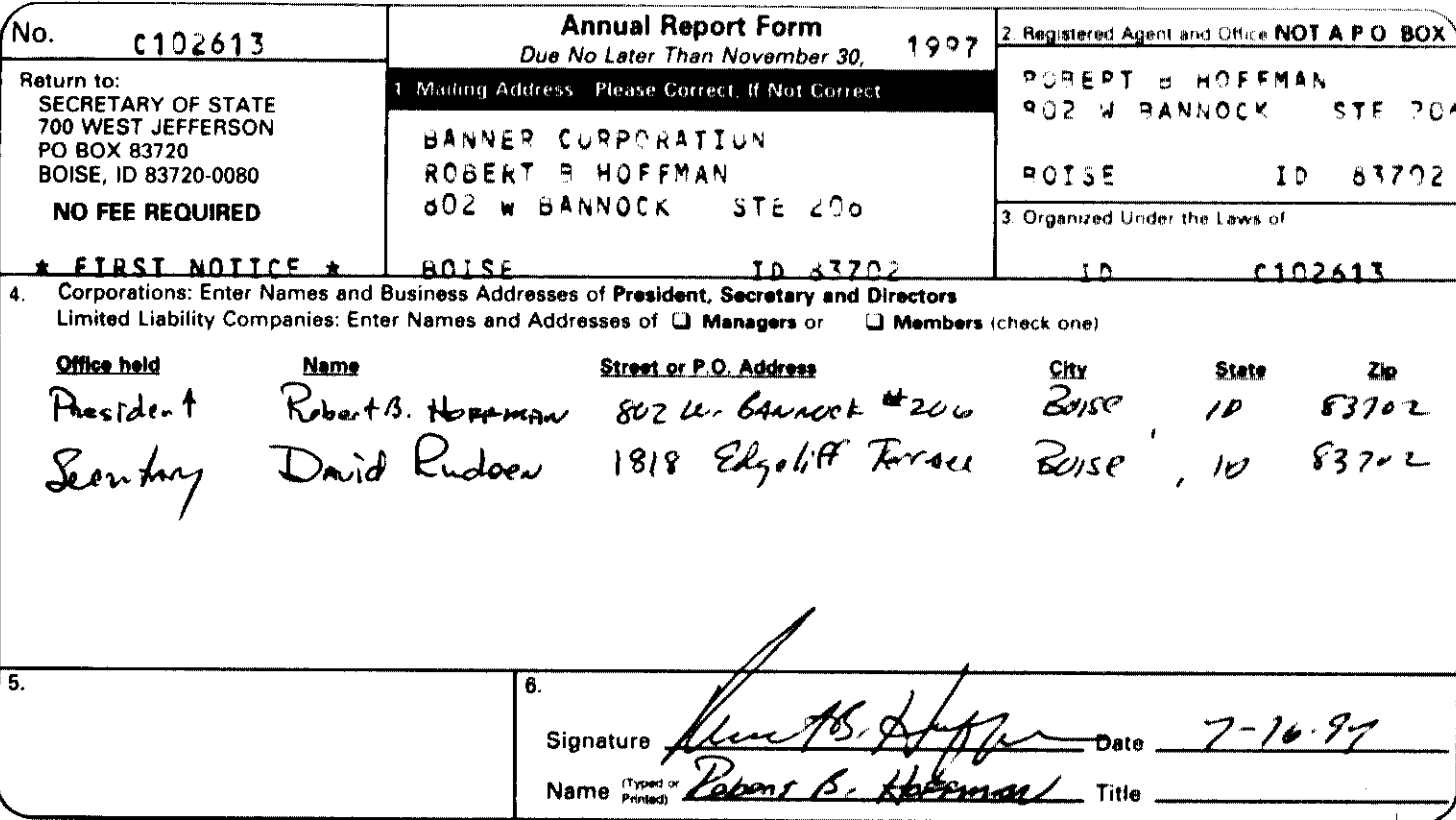 No. C102613
Return to:
SECRETARY OF STATE
700 WEST JEFFERSON
PO BOX 83720
BOISE, ID 83720-0080
NO FEE REQUIRED
* FIRST NOTICE *
Annual Report Form
Due No Later Than November 30, 1997
1. Mailing Address Please Correct, If Not Correct
BANNER CORPORATION
ROBERT B HOFFMAN
802 W BANNOCK STE 206
BOISE ID 83702
2. Registered Agent and Office NOT A P O BOX
ROBERT B HOFFMAN
802 W BANNOCK STE
BOISE ID 83702
3. Organized Under the Laws of
ID C102613
4. Corporations: Enter Names and Business Addresses of President, Secretary and Directors
Limited Liability Companies: Enter Names and Addresses of ☐ Managers or ☐ Members (check one)
Office held Name Street or P.O. Address City State Zip
President Robert B. HOFFMAN 802 W. BANNOCK #206 Boise, ID 83702
Secretary David 1818 Edgecliff Terrace Boise, ID 83702
5.
6.
Signature Date 7-16-97
Name (Typed or Printed) Robert B. Hoffman Title